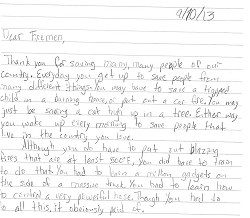 9/10/13
Dear Firemen,
Thank you for saving many, many people of our
country. Everyday you get up to save people from
many different things. You may have to save a trapped
child in a burning home, or put out a car fire. You may
just be saving a cat high up in a tree. Either way
you wake up every morning to save people that
live in the country you love.
Although you do have to put out blazing
fires that are at least 500°F, you did have to train
to do that. You had to learn a million, gadgets on
the side of a massive truck. You had to learn how
to control a very powerful hose. Though you had to
do all this, it obviously paid of.